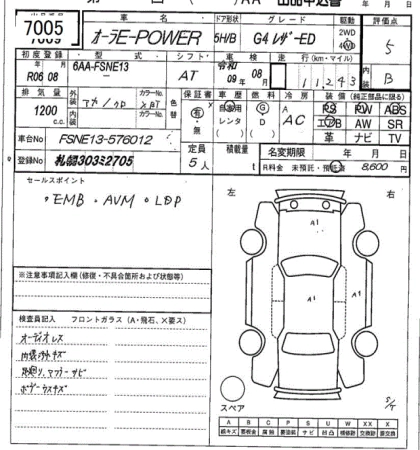 7005
車名 ドア形状 グレード 駆動 評価点
オーラE-POWER 5H/B G4 レザーED 2WD 4WD 5
初度登録 型式 シフト 車検 走行 (km・マイル) 内装
R06 08 6AA-FSNE13 AT 令和 09年 08月 11,243 B
排気量 外装 内装 カラーNo. 色替 保証書 車歴 燃料 冷房 装備 (純正部品に限る)
1200 c.c. 有・無 自家用 レンタ G D AC PS PW ABS
エアB AW SR
革 ナビ TV
車台No FSNE13-576012 定員 積載量 名変期限 年 月 日
登録No 札幌303ミ2705 5人 t R料金 未預託・預託 8,600円
セールスポイント
・EMB ・AVM ・LDP
左 右
A1
A1 A1
※注意事項記入欄 (修復・不具合箇所および状態等)
検査員記入 フロントガラス (A・飛石、X要ス)
オーディオレス
内張りキズ
下廻り、マフラーサビ
ボデーウスキズ
スペア
S/T
A B C P S U W X XX
線キズ 要板金 腐蝕 要塗装 サビ 凹凸 補修跡 交換跡 要交換